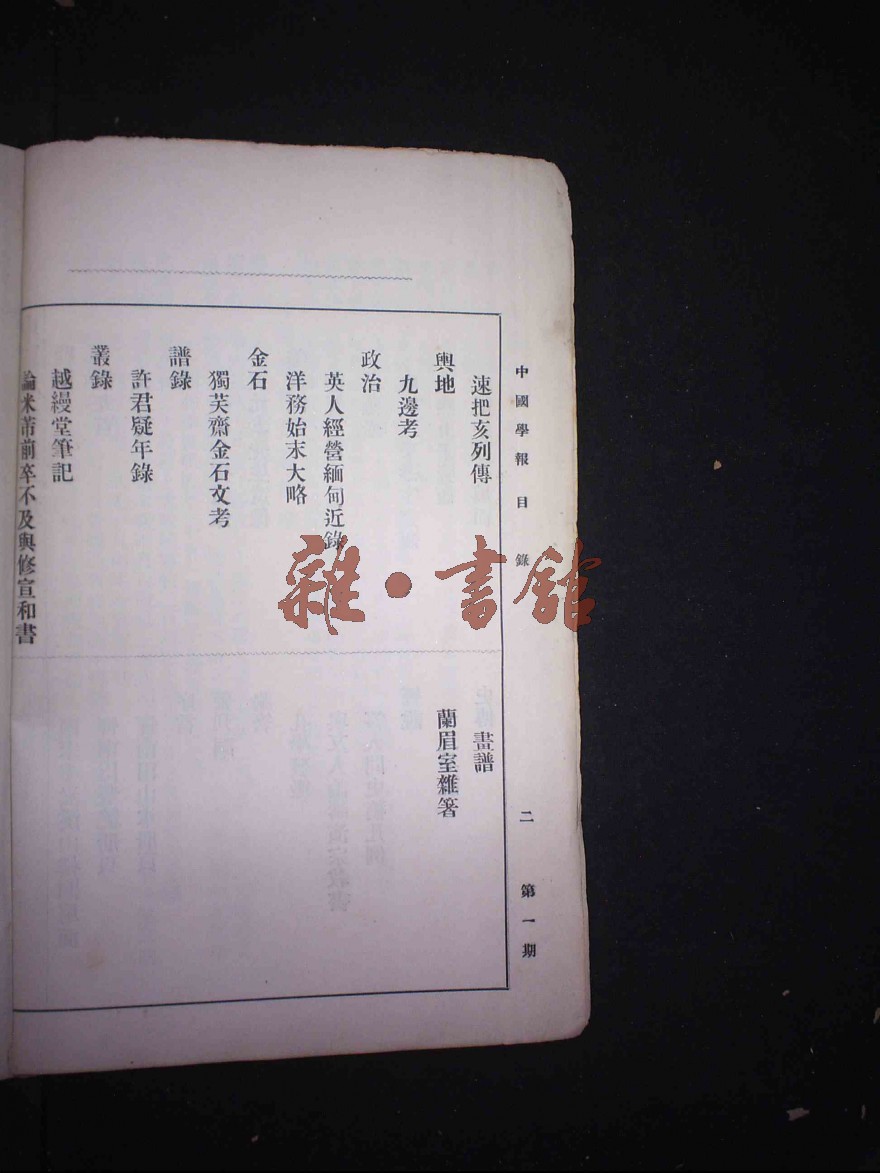 中國學報 目錄 二 第一期
速把亥列傳
輿地
九邊考
政治
英人經營緬甸近錄
洋務始末大略
金石
獨笑齋金石文考
譜錄
許君疑年錄
叢錄
越縵堂筆記
論米芾前卒不及與修宣和書
畫譜
蘭眉室雜箸
雜·書館